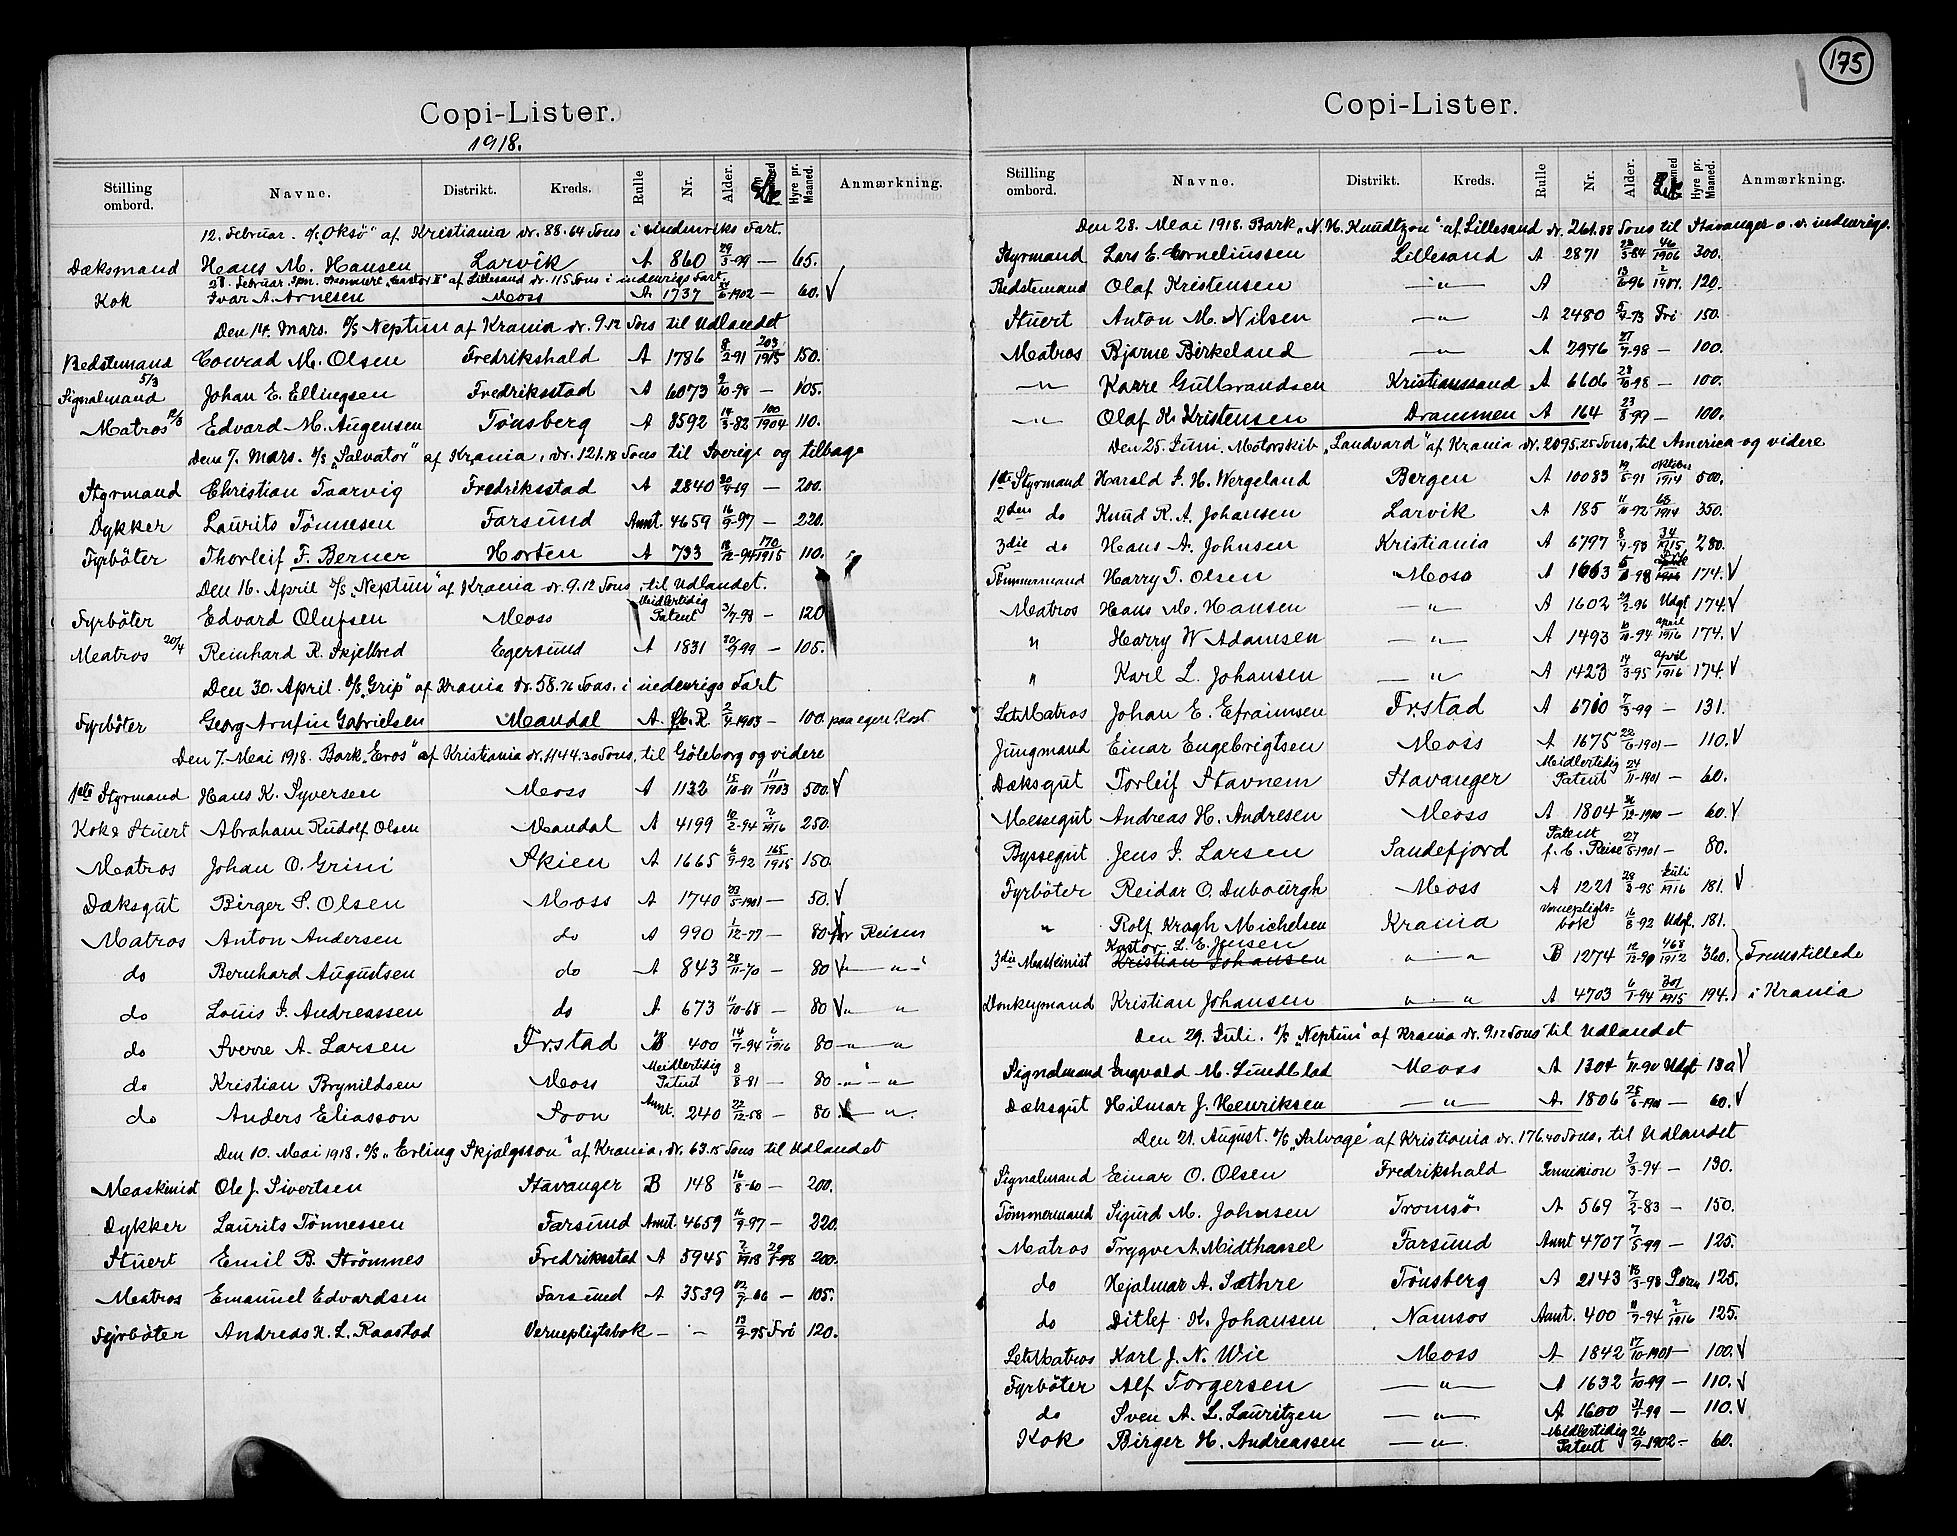 175
Copi-Lister.
1918.
Stilling ombord. Navne. Distrikt. Kreds. Rulle Nr. Alder. Hyre pr. Maaned. Anmærkning.
12. Februar. d/s „Oksö" af Kristiania dr. 88.64 Tons i indenriks Fart.
Dæksmand Hans M. Hansen Larvik A 860 29/3-99 — 65.
28. Februar Spr. Skonnert „Castor II" af Lillesand dr. 115 Tons i indenrigs Fart
Kok Ivar A. Arnesen Moss A 1737 /6-1902 — 60. V
Den 14. Mars. d/s Neptun af Krania dr. 9.12 Tons til Udlandet
Bedstemand Conrad M. Olsen Fredrikshald A 1786 8/2-91 203/1915 150.
Signalmand 5/3 Johan E. Ellingsen Fredriksstad A 6073 9/10-98 — 105.
Matros 12/3 Edvard M. Augensen Tönsberg A 8592 14/3-82 100/1904 110.
Den 7. Mars. d/s „Salvator" af Krania, dr. 121.18 Tons til Sverige og tilbage
Styrmand Christian Taarvig Fredriksstad A 2840 20/9-69 — 200.
Dykker Laurits Tönnesen Farsund Amt. 4659 16/9-97 — 220.
Fyrböter Thorleif F. Berner Horten A 733 18/12-94 170/1915 110.
Den 16. April d/s „Neptun" af Krania dr. 9.12 Tons, til Udlandet.
Fyrböter Edvard Olufsen Moss Meidlertidig Patent 3/7-98 — 120
Matros 20/4 Reinhard R. Skjelbred Egersund A 1831 20/9-99 — 105.
Den 30. April. d/s „Grip" af Krania dr. 58.76 Tons. i indenrigs Fart
Fyrböter Georg Arnfin Gabrielsen Mandal A. Fl. R. 2/9-1903 — 100. paa egen Kost
Den 7. Mai 1918. Bark „Eros" af Kristiania dr. 1144.30 Tons, til Göteborg og videre
1ste Styrmand Hans K. Syversen Moss A 1132 15/10-81 11/1903 500. V
Kok & Stuert Abraham Rudolf Olsen Mandal A 4199 10/2-94 2/1916 250.
Matros Johan O. Grini Skien A 1665 6/9-92 165/1915 150.
Dæksgut Birger S. Olsen Moss A 1740 22/5-1901 — 50. V
Matros Anton Andersen do A 990 1/12-77 — 80 for Reisen
do Bernhard Augustsen do A 843 28/11-70 — 80 V — " —
do Louis I. Andreassen do A 673 11/10-68 — 80 V — "
do Sverre A. Larsen Frstad B 400 14/7-94 6/1916 80 — "
do Kristian Brynildsen Moss Meidlertidig Patent 8/8-81 — 80 — " — "
do Anders Eliasson Soon Amt. 240 22/12-58 — 80 V — "
Den 10. Mai 1918. d/s „Erling Skjalgsson" af Krania, dr. 63.15 Tons til Udlandet
Maskinist Ole J. Sivertsen Stavanger B 148 16/8-60 — 200.
Dykker Laurits Tönnessen Farsund Amt. 4659 16/9-97 — 220.
Stuert Emil B. Strömnes Fredriksstad A 5945 2/1918 29/8-98 200.
Matros Emanuel Edvardsen Farsund A 3539 12/7-66 — 105.
Fyrböter Andreas H. L. Raastad Vernepligtsbok — — 13/9-95 Fri 120.
Copi-Lister.
Stilling ombord. Navne. Distrikt. Kreds. Rulle Nr. Alder. Hyre pr. Maaned. Anmærkning.
Den 28. Mai 1918. Bark „N. H. Knudtzon" af Lillesand dr. 261.88 Tons til Stavanger o. v. indenrigs.
Styrmand Lars E. Corneliussen Lillesand A 2871 22/3-84 46/1906 300.
Bedstemand Olaf Kristensen — " — A 13/6-96 2/1917. 120.
Stuert Anton M. Nilsen — " — A 2480 5/9-73 Fri 150.
Matros Bjarne Birkeland — " — A 2976 27/7-98 — 100.
— " — Kaare Gulbrandsen Kristianssand A 6606 28/10-98 — 100.
— " — Olaf K. Kristensen Drammen A 164 23/8-99 — 100.
Den 25. Juni. Motorskib „Landvard" af Krania dr. 2095.25 Tons, til America og videre
1ste Styrmand Harald I. H. Wergeland Bergen A 10083 19/5-91 oktbr/1914 500.
2den do Knud R. A. Johansen Larvik A 185 11/11-92 65/1914 350.
3die do Hans A. Johnsen Kristiania A 6797 8/9-93 34/1915 280.
Tömmermand Harry T. Olsen Moss A 1663 5/8-98 174. V
Matros Hans M. Hansen — " — A 1602 29/2-96 Udgt 174. V
" Harry W Adamsen — " — A 1493 10/10-94 april/1916 174. V
" Karl L. Johansen — " — A 1423 14/3-95 april/1916 174. V
LetMatros Johan E. Efraimsen Frstad A 6710 7/3-99 — 131.
Jungmand Einar Engebrigtsen Moss A 1675 22/6-1901 — 110. V
Dæksgut Torleif Stavnem Stavanger Meidlertidig Patent 24/11-1901 — 60.
Messegut Andreas H. Andresen Moss A 1804 31/12-1900 — 60. V
Byssegut Jens I. Larsen Sandefjord Patent f. 6. Reise 27/5-1901 — 80.
Fyrböter Reidar O. Dubourgh Moss A 1221 29/3-95 Juli/1916 181. V
" Rolf Kragh Michelsen Krania Vernepligts-bok 16/8-92 Udgt. 181.
3die Maskinist Kastor L. E. Jensen Kristian Johansen " — " B 1274 12/12-90 468/1912 360. } Fremstillede
Donkeymand Kristian Johansen " — " A 4703 6/1-94 301/1915 194. i Krania
Den 29. Juli. d/s „Neptun" af Krania dr. 9.12 Tons til Udlandet
Signalmand Ingvald M. Lundblad Moss A 1304 6/11-90 Udgt 130. V
Dæksgut Hilmar J. Henriksen — " — A. 1806 25/6-1901 — 60. V
Den 21. August. d/s „Artvage" af Kristiania dr. 176.40 Tons, til Udlandet
Signalmand Einar O. Olsen Fredrikshald Permission 3/3-94 — 130.
Tömmermand Sigurd M. Johnsen Tromsö A 569 7/2-83 — 150.
Matros Trygve A. Midthassel Farsund Amt 4707 7/5-99 — 125.
do Hjalmar A. Sæthre Tönsberg A 2143 18/3-98 125.
do Ditlef K. Johansen Namsos Amt. 400 11/7-94 2/1916 125.
LetMatros Karl J. N. Wie Moss A 1842 17/10-1901 — 100. V
Fyrböter Alf Torgersen — " — A 1632 1/10-99 — 110. V
do Sven A. L. Lauritzen — " — A 1600 31/8-99 — 110. V
Kok Birger H. Andreassen — " — Meidlertidig Patent 26/9-1902 — 60.